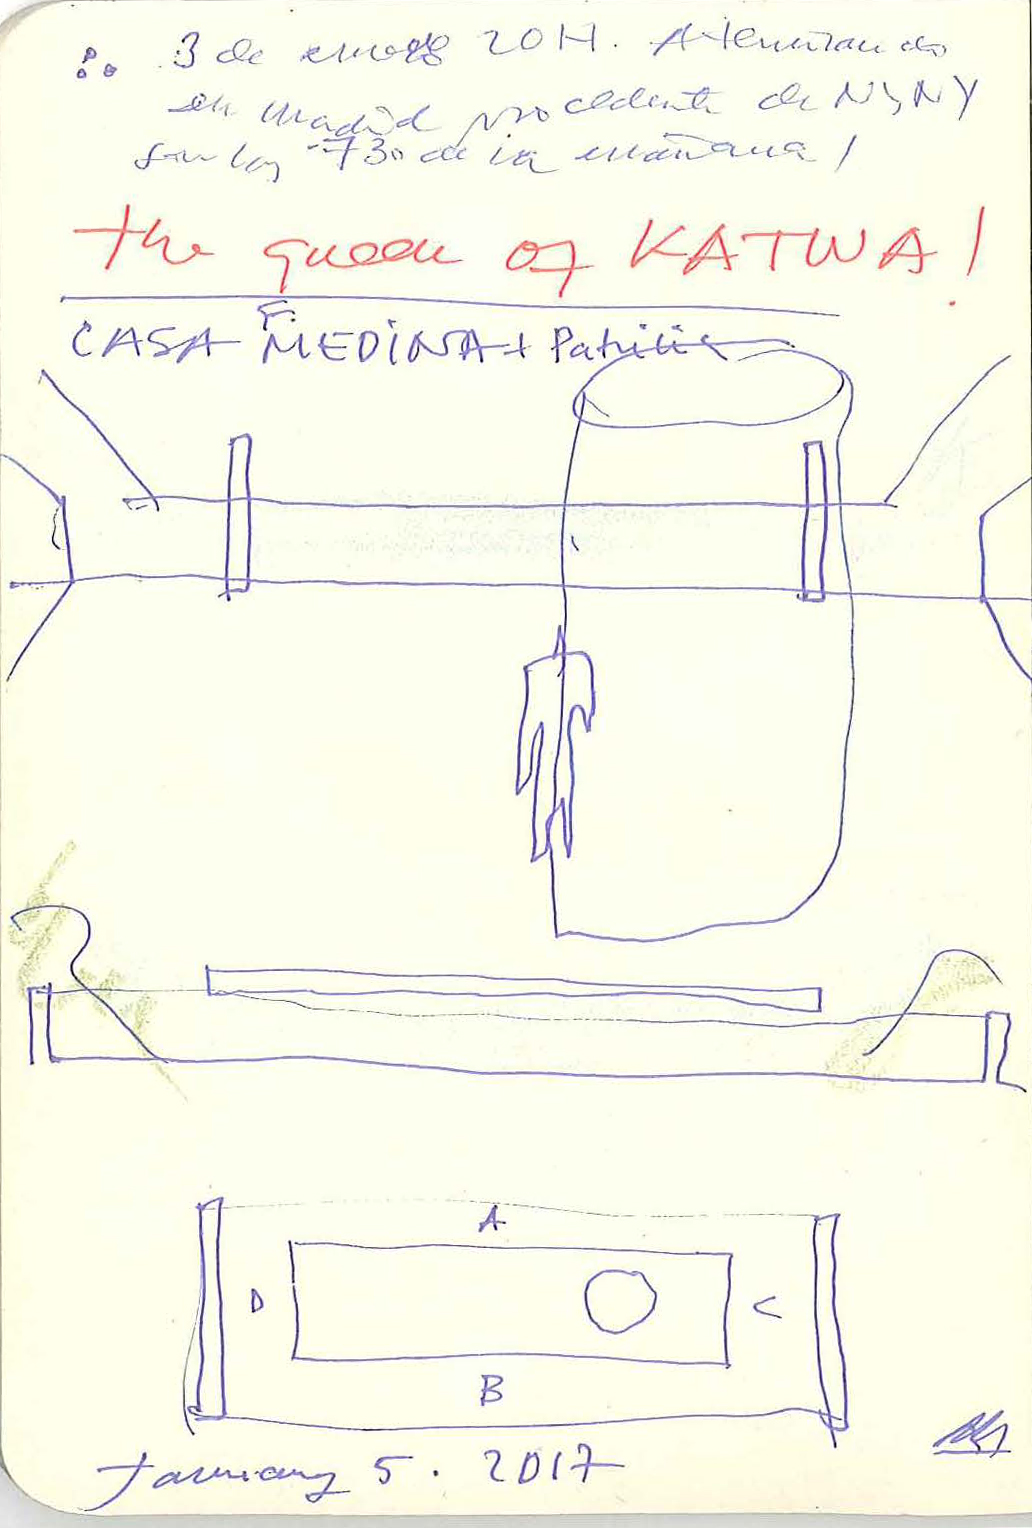 3 de enero 2017. Aterrizando
en Madrid procedente de NY, NY
son las 730 de la mañana!
the queen of KATWA!
CASA F. MEDINA +
A
D C
B
January 5. 2017